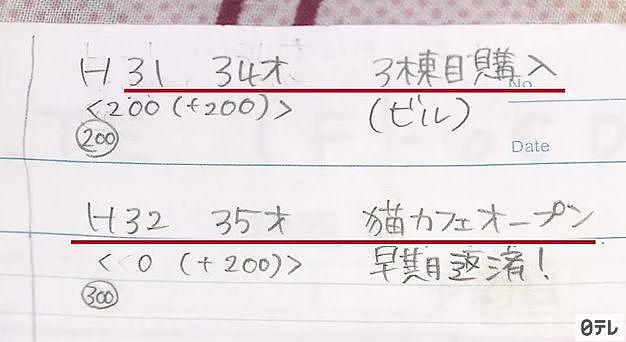 H31 34才 3棟目購入
No.
<200 (+200)> (ビル)
200
Date
H32 35才 猫カフェオープン
< 0 (+200)> 早期返済!
300
日テレ